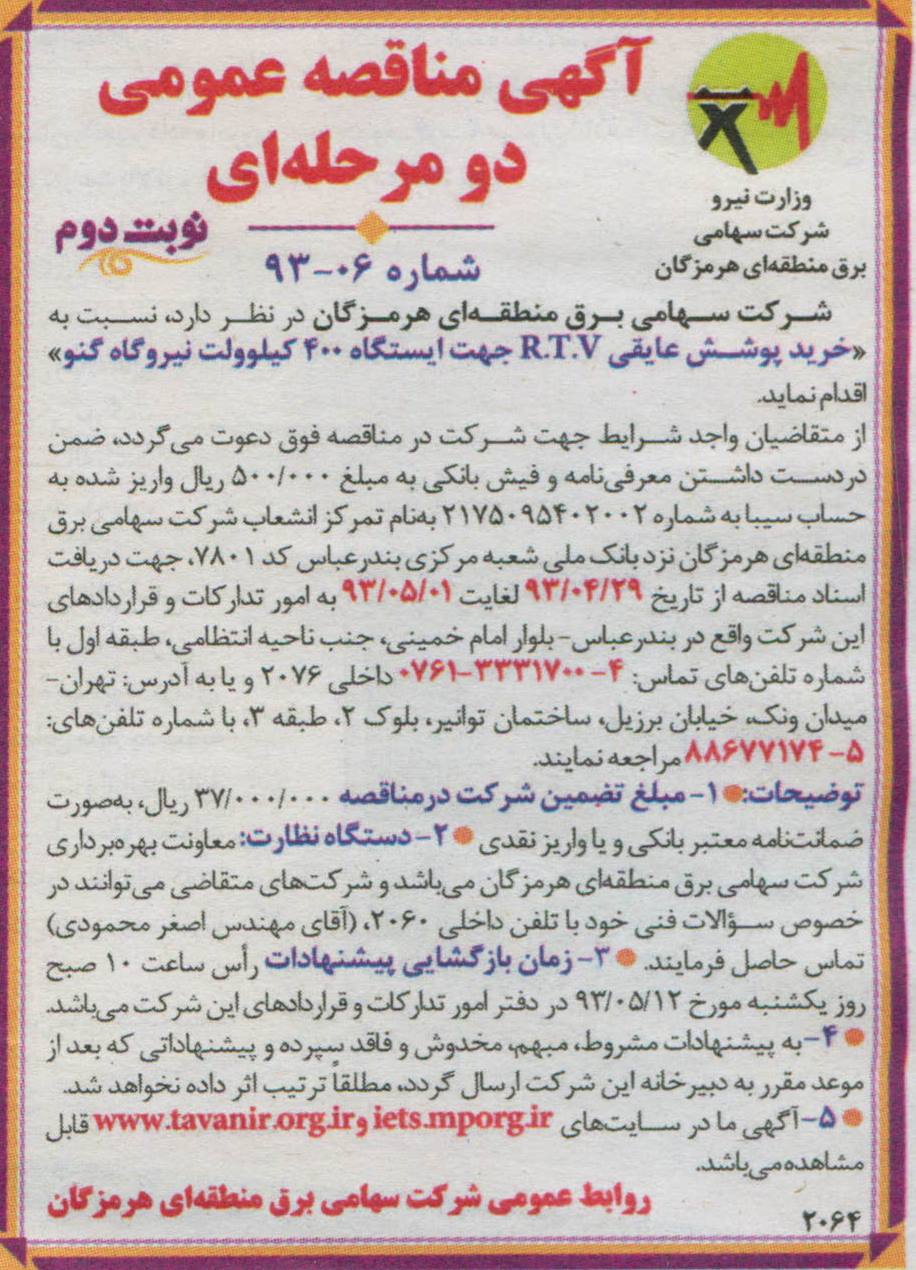 آگهی مناقصه عمومی
دو مرحله‌ای
وزارت نیرو
شرکت سهامی
برق منطقه‌ای هرمزگان
نوبت دوم
شماره ۰۶-۹۳
شرکت سهامی برق منطقه‌ای هرمزگان در نظر دارد، نسبت به
«خرید پوشش عایقی R.T.V جهت ایستگاه ۴۰۰ کیلوولت نیروگاه گنو»
اقدام نماید.
از متقاضیان واجد شرایط جهت شرکت در مناقصه فوق دعوت می‌گردد، ضمن
در دست داشتن معرفی‌نامه و فیش بانکی به مبلغ ۵۰۰/۰۰۰ ریال واریز شده به
حساب سیبا به شماره ۲۱۷۵۰۹۵۴۰۲۰۰۲ به‌نام تمرکز انشعاب شرکت سهامی برق
منطقه‌ای هرمزگان نزد بانک ملی شعبه مرکزی بندرعباس کد ۷۸۰۱، جهت دریافت
اسناد مناقصه از تاریخ ۹۳/۰۴/۲۹ لغایت ۹۳/۰۵/۰۱ به امور تدارکات و قراردادهای
این شرکت واقع در بندرعباس- بلوار امام خمینی، جنب ناحیه انتظامی، طبقه اول با
شماره تلفن‌های تماس: ۴-۰۷۶۱-۳۳۳۱۷۰۰ داخلی ۲۰۷۶ و یا به آدرس: تهران-
میدان ونک، خیابان برزیل، ساختمان توانیر، بلوک ۲، طبقه ۳، با شماره تلفن‌های:
۵-۸۸۶۷۷۱۷۴ مراجعه نمایند.
توضیحات: ● ۱- مبلغ تضمین شرکت در مناقصه ۳۷/۰۰۰/۰۰۰ ریال، به‌صورت
ضمانت‌نامه معتبر بانکی و یا واریز نقدی ● ۲- دستگاه نظارت: معاونت بهره‌برداری
شرکت سهامی برق منطقه‌ای هرمزگان می‌باشد و شرکت‌های متقاضی می‌توانند در
خصوص سؤالات فنی خود با تلفن داخلی ۲۰۶۰، (آقای مهندس اصغر محمودی)
تماس حاصل فرمایند. ● ۳- زمان بازگشایی پیشنهادات رأس ساعت ۱۰ صبح
روز یکشنبه مورخ ۹۳/۰۵/۱۲ در دفتر امور تدارکات و قراردادهای این شرکت می‌باشد.
● ۴- به پیشنهادات مشروط، مبهم، مخدوش و فاقد سپرده و پیشنهاداتی که بعد از
موعد مقرر به دبیرخانه این شرکت ارسال گردد، مطلقاً ترتیب اثر داده نخواهد شد.
● ۵- آگهی ما در سایت‌های iets.mporg.ir و www.tavanir.org.ir قابل
مشاهده می‌باشد.
روابط عمومی شرکت سهامی برق منطقه‌ای هرمزگان
۲۰۶۴